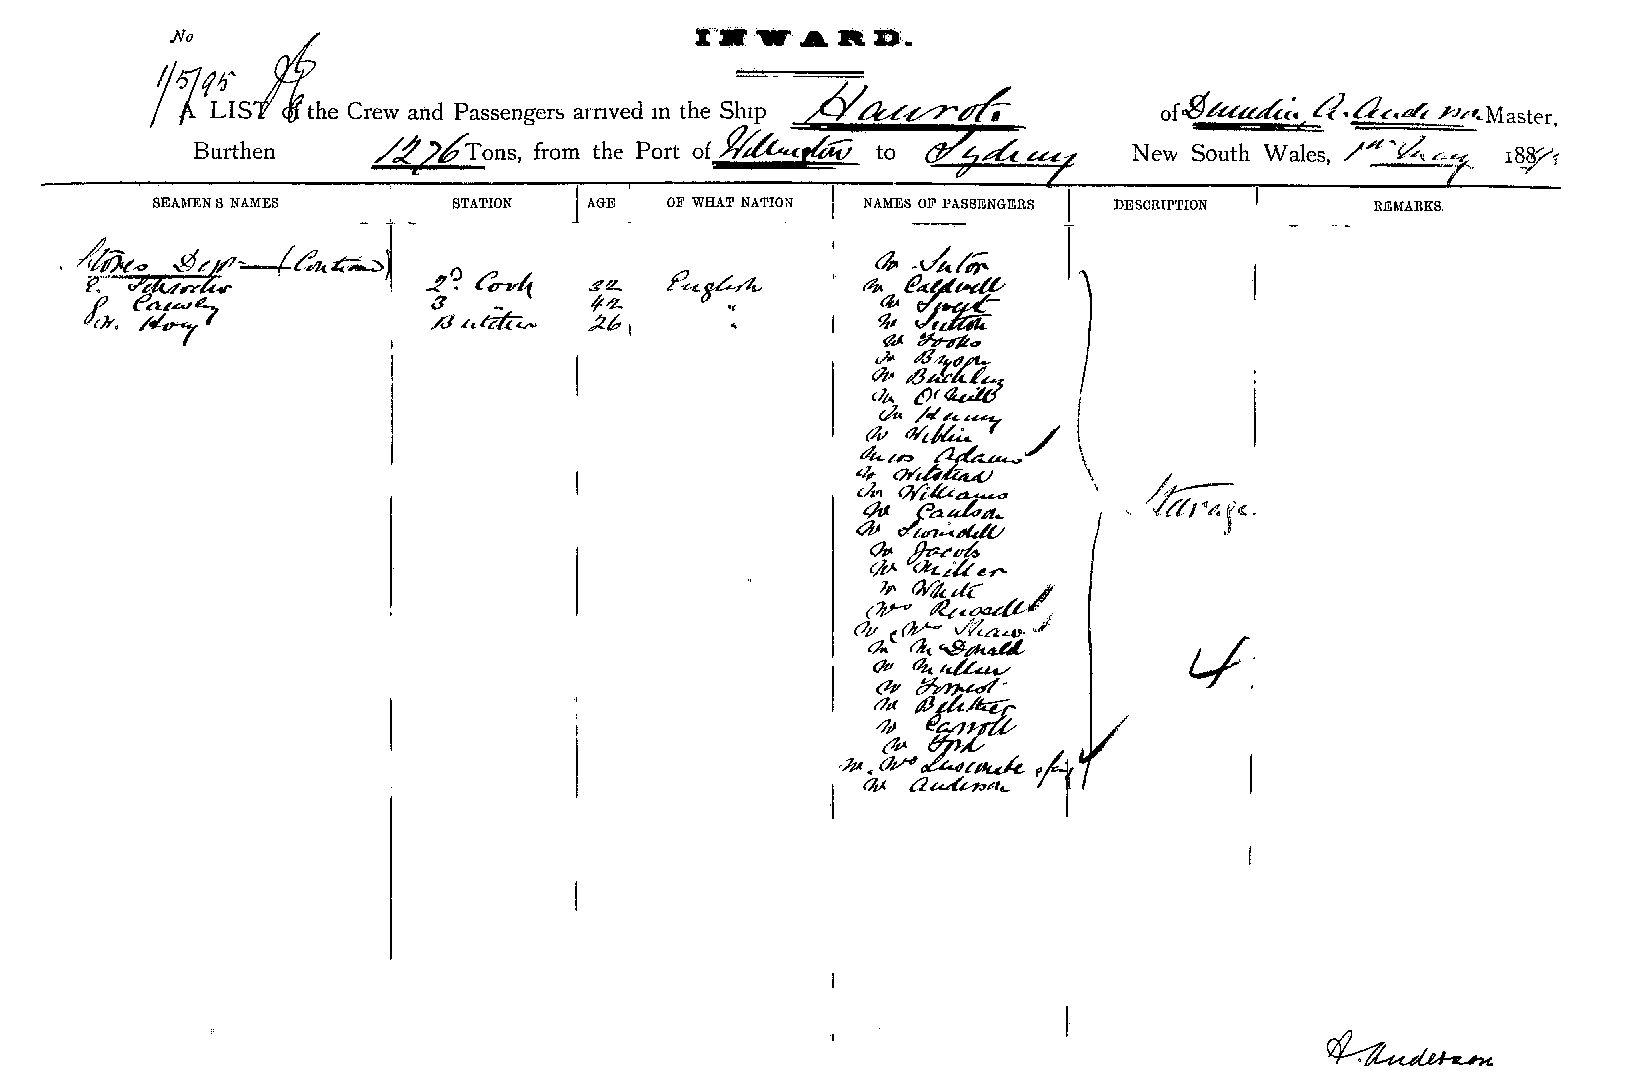 No
INWARD.
1/5/95
A LIST of the Crew and Passengers arrived in the Ship Hauroto of Dunedin, A. Anderson Master,
Burthen 1276 Tons, from the Port of Wellington to Sydney New South Wales, 1st May 188
SEAMEN S NAMES STATION AGE OF WHAT NATION NAMES OF PASSENGERS DESCRIPTION REMARKS.
Stores Dept (Continued)
E. Schroder 2d Cook 32 English
Cawley 3 " 42 "
H. Hoey Butcher 26 "
Mr Sutor
Mr Caldwell
Mr Swift
Mr Sutton
Mr Fooks
Mr Bryson
Mr Buckley
Mr O'Neill
Mr Henry
Mr Weblin
Miss Adams
Mr Welstead
Mr Williams
Mr Caulson
Mr Swindell
Mr Jacobs
Mr Miller
Mr White
Mrs Russell
Mr & Mrs Shaw
Mr McDonald
Mr Muller
Mr Forrest
Mr Belcher
Mr Carroll
Mr Ford
Mr Mrs Luscombe
Mr Anderson
Sterage
4
A. Anderson